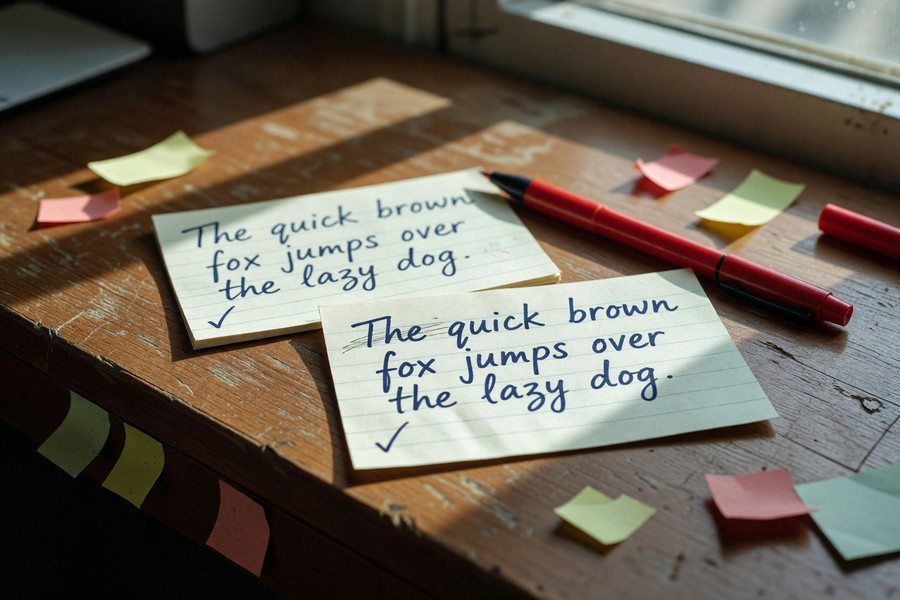 The quick brown
fox jumps over
the lazy dog.
✓
The quick brown
fox jumps over
the lazy dog.
✓